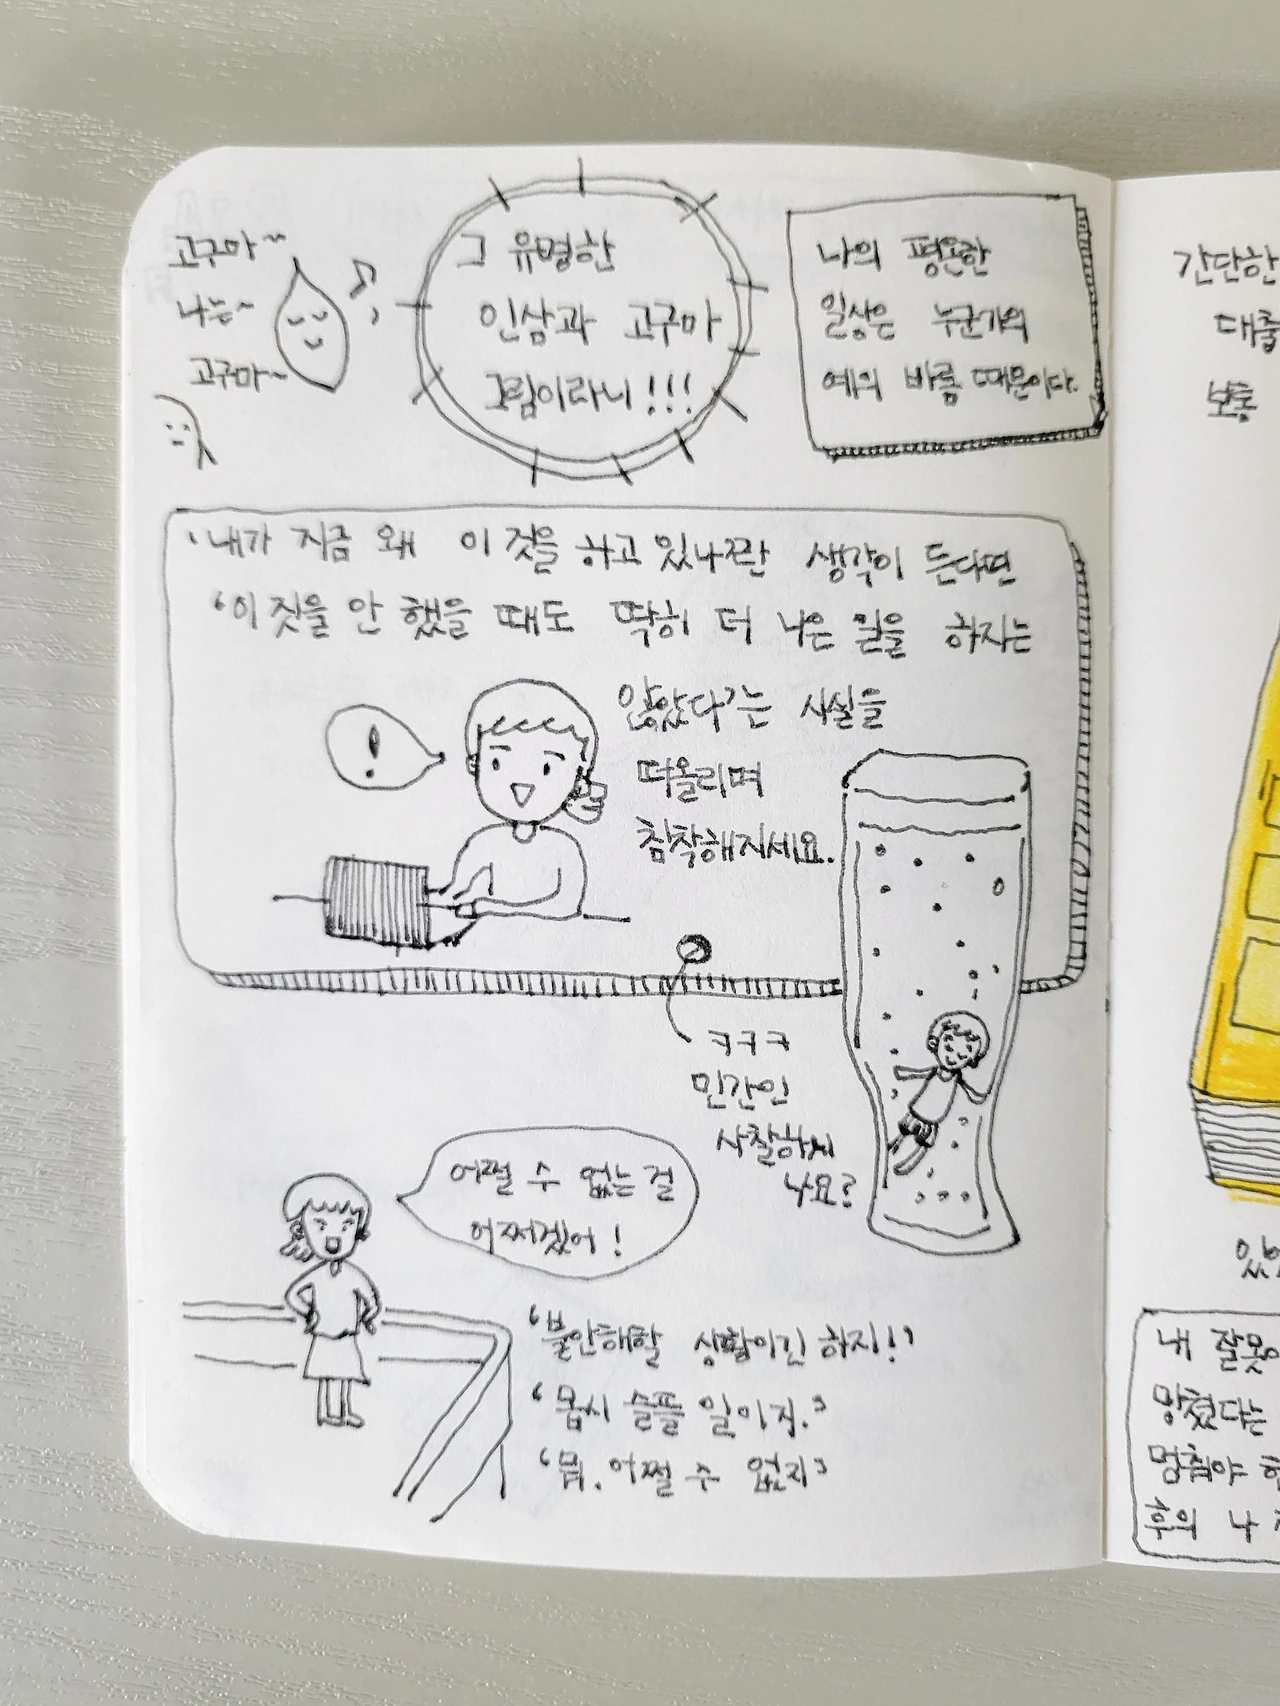 고구마~
나는~
고구마~
그 유명한
인삼과 고구마
그림이라니!!!
나의 평온한
일상은 누군가의
예의 바름 때문이다.
'내가 지금 왜 이것을 하고 있나'란 생각이 든다면
'이것을 안 했을 때도 딱히 더 나은 일을 하지는
않았다'는 사실을
떠올리며
침착해지세요.
!
ㅋㅋㅋ
민간인
사찰하시
나요?
어쩔 수 없는 걸
어쩌겠어!
'불안해할 상황이긴 하지!'
'몹시 슬플 일이지.'
'뭐. 어쩔 수 없지'
간단한
대출
보통
내 잘못
망쳤다는
멈춰야
후의 나